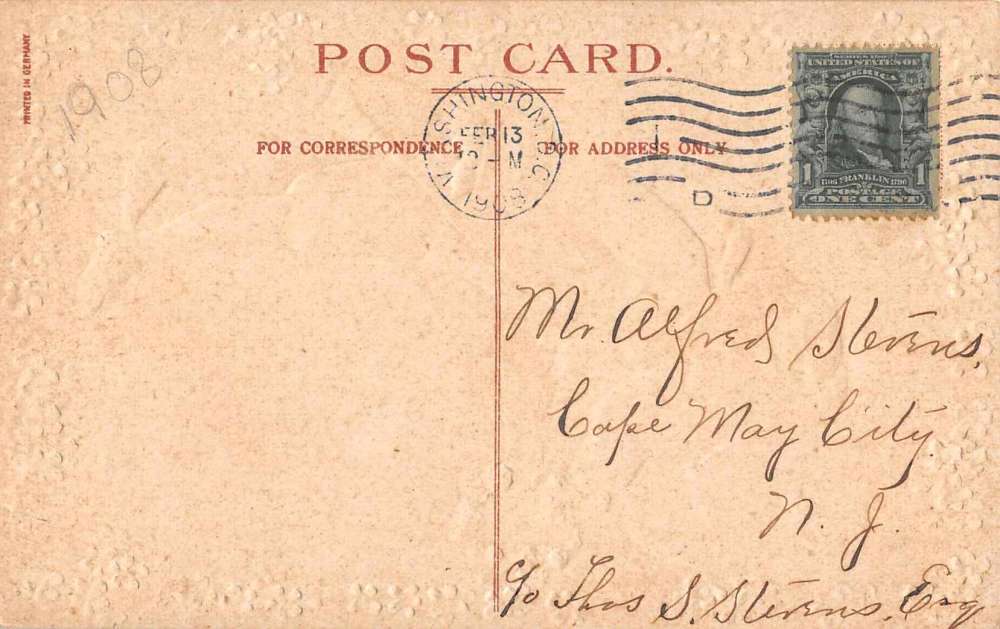 PRINTED IN GERMANY
1908
POST CARD.
WASHINGTON, D.C.
FEB 13
M
1908
FOR CORRESPONDENCE
FOR ADDRESS ONLY
D
UNITED STATES OF
AMERICA
1 FRANKLIN 1
POSTAGE
ONE CENT
Mr. Alfred Stevens,
Cape May City
N. J.
c/o Thos S. Stevens, Esq